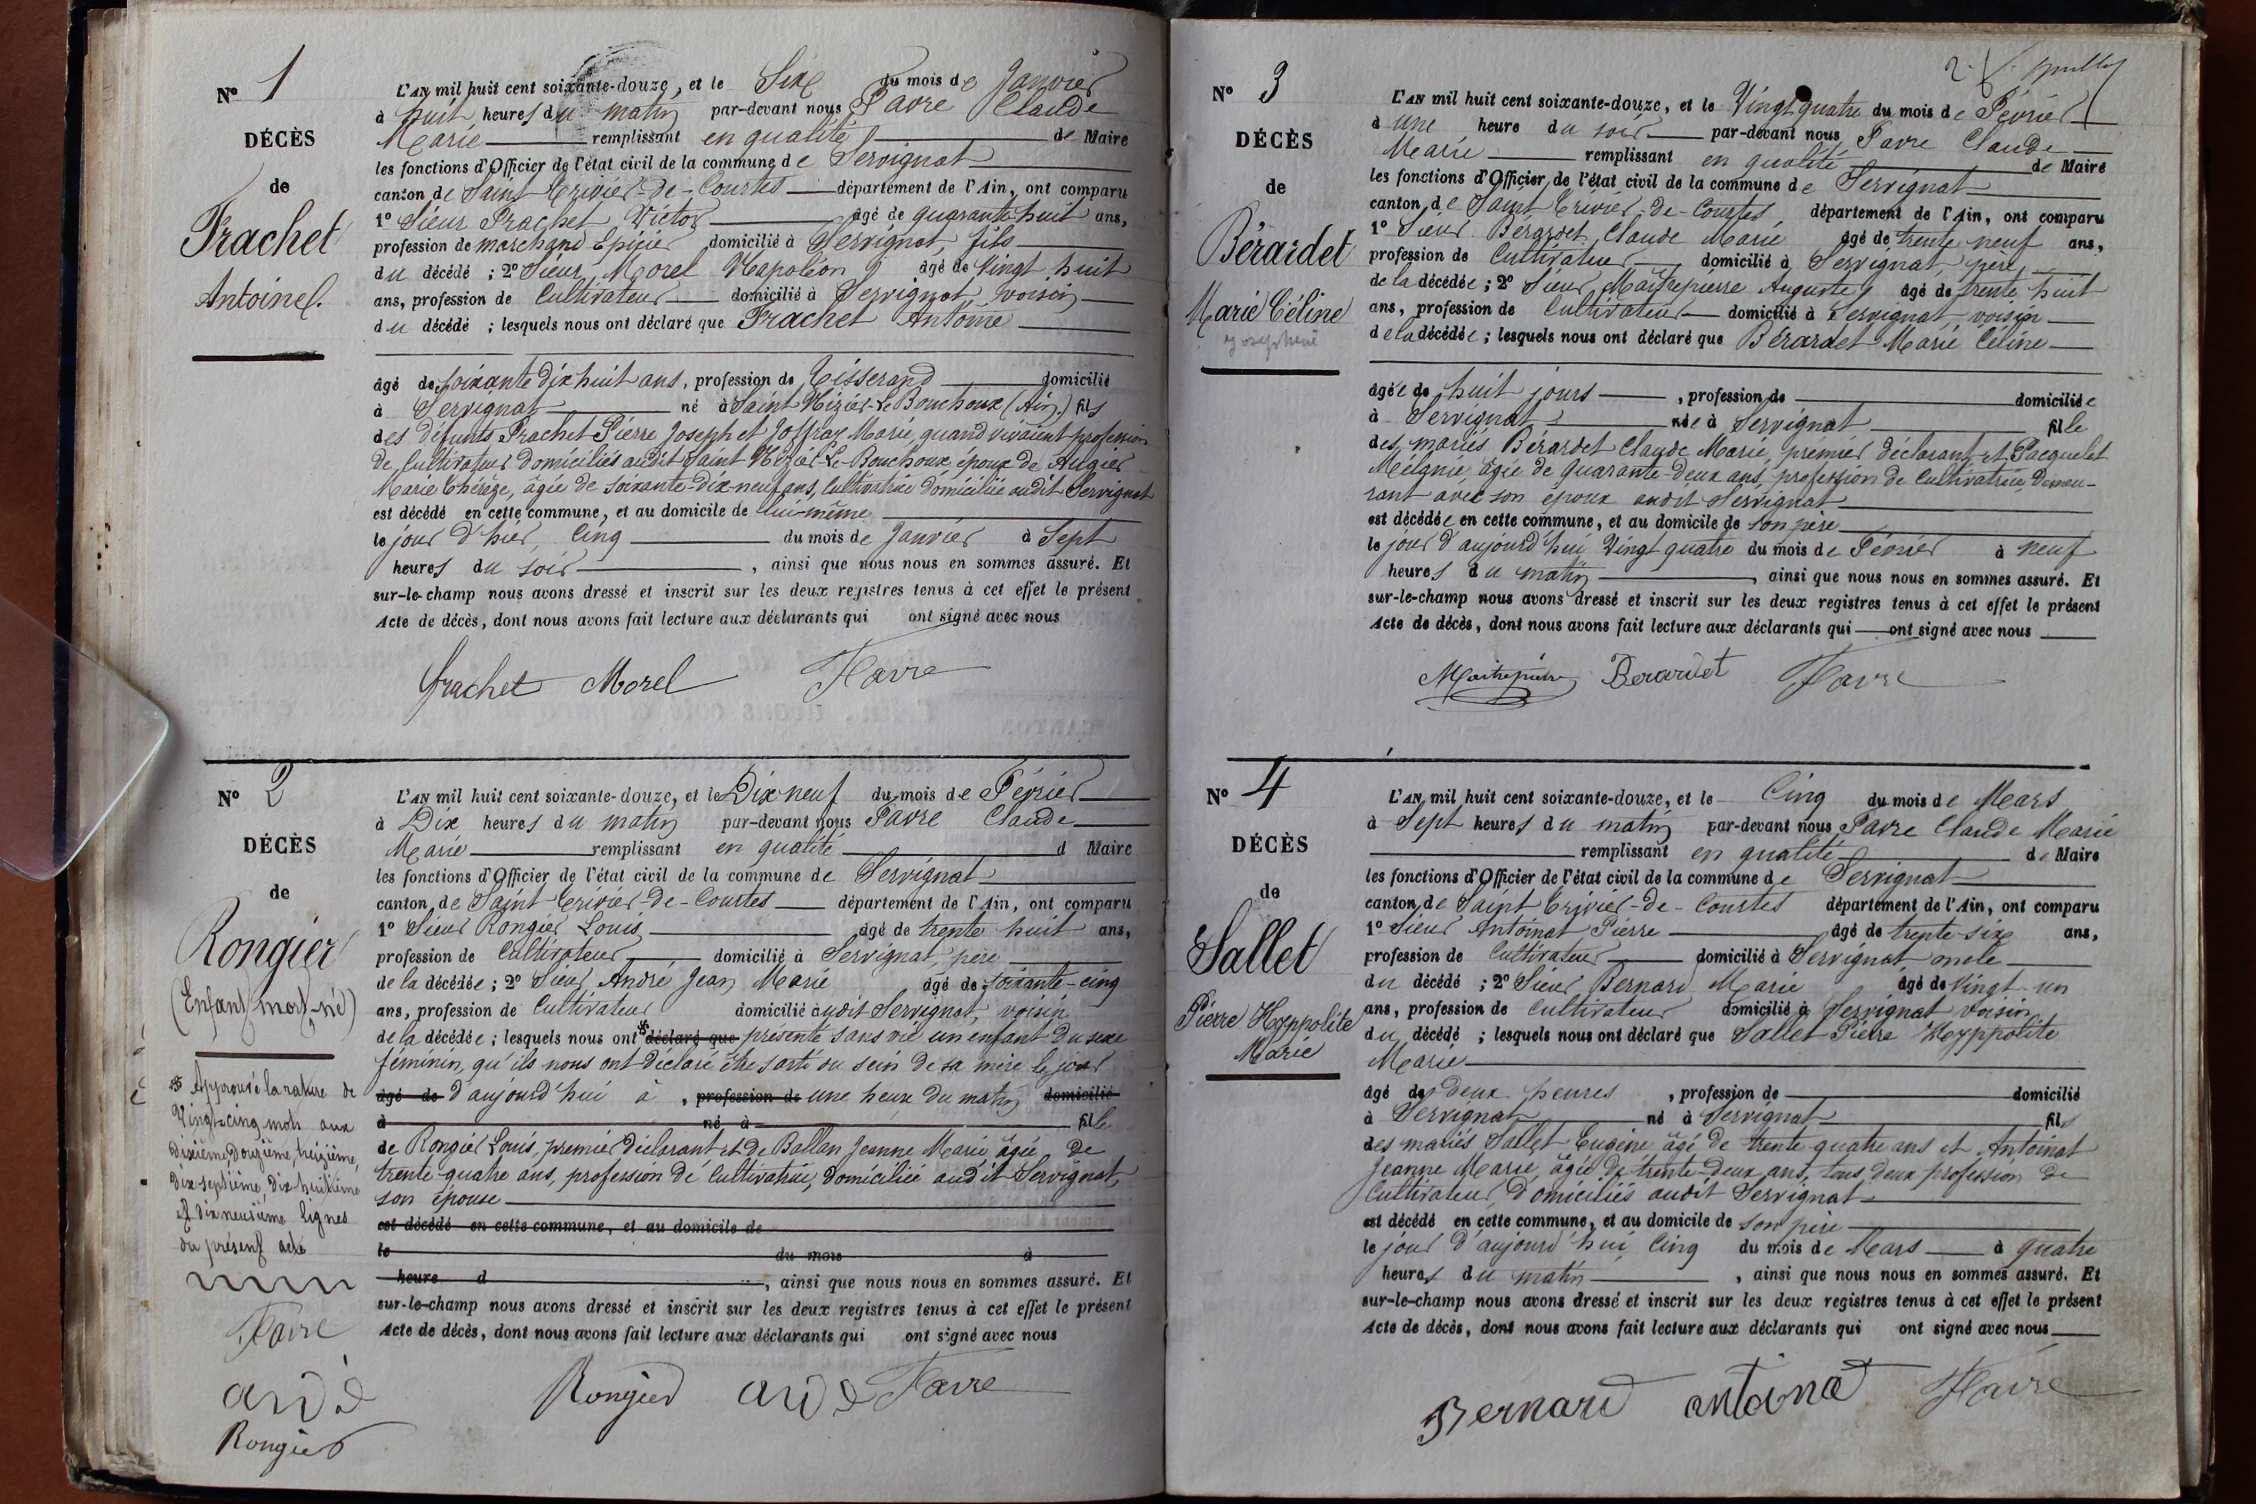 N° 1
DÉCÈS
de
Frachet
Antoine.
L'AN mil huit cent soixante-douze, et le Six du mois de Janvier
à huit heures du matin par-devant nous Favre Claude
Marie remplissant en qualité de Maire
les fonctions d'Officier de l'état civil de la commune de Servignat
canton de Saint Trivier-de-Courtes département de l'Ain, ont comparu
1° Sieur Frachet Victor âgé de quarante-huit ans,
profession de marchand Epicier domicilié à Servignat, fils
du décédé ; 2° Sieur Morel Napoléon âgé de Vingt huit
ans, profession de Cultivateur domicilié à Servignat voisin
du décédé ; lesquels nous ont déclaré que Frachet Antoine
âgé de soixante dix huit ans, profession de Tisserand domicilié
à Servignat né à Saint Nizier-Le Bouchoux (Ain.) fils
des défunts Frachet Pierre Joseph et Joffray Marie, quand vivaient profession
de Cultivateurs domiciliés audit Saint Nizier-Le-Bouchoux, époux de Augier
Marie Thérèze, âgée de soixante-dix-neuf ans, Cultivatrice domiciliée audit Servignat
est décédé en cette commune, et au domicile de lui-même
le jour d'hier, Cinq du mois de Janvier à Sept
heures du soir, ainsi que nous nous en sommes assuré. Et
sur-le-champ nous avons dressé et inscrit sur les deux registres tenus à cet effet le présent
Acte de décès, dont nous avons fait lecture aux déclarants qui ont signé avec nous
frachet Morel Favre
N° 2
DÉCÈS
de
Rongier
(Enfant mort-né)
Approuvé la rature de
Vingt-cinq mots aux
dixième, douzième, treizième,
dix septième, dix huitième
et dix neuvième lignes
du présent acte
Favre
andé
Rongier
L'AN mil huit cent soixante-douze, et le Dix neuf du mois de Février
à Dix heures du matin par-devant nous Favre Claude
Marie remplissant en qualité d Maire
les fonctions d'Officier de l'état civil de la commune de Servignat
canton de Saint Trivier-de-Courtes département de l'Ain, ont comparu
1° Sieur Rongier Louis, âgé de trente huit ans,
profession de Cultivateur domicilié à Servignat, père
de la décédée ; 2° Sieur André Jean Marie âgé de soixante-cinq
ans, profession de Cultivateur domicilié audit Servignat, voisin
de la décédée ; lesquels nous ont déclaré que présenté sans vie un enfant du sexe
féminin, qu'ils nous ont déclaré être sorti du sein de sa mère le jour
âgé de d'aujourd'hui à , profession de une heure du matin domicilié
à né à fille
de Rongier Louis, premier déclarant et de Ballan Jeanne Marie, âgée de
trente-quatre ans, profession de Cultivatrice, domiciliée audit Servignat,
son épouse
est décédé en cette commune, et au domicile de
le du mois à
heure d, ainsi que nous nous en sommes assuré. Et
sur-le-champ nous avons dressé et inscrit sur les deux registres tenus à cet effet le présent
Acte de décès, dont nous avons fait lecture aux déclarants qui ont signé avec nous
Rongier andé Favre
N° 3
DÉCÈS
de
Bérardet
Marie Céline
Joséphine
L'AN mil huit cent soixante-douze, et le Vingt quatre du mois de Février
à une heure du soir par-devant nous Favre Claude
Marie remplissant en qualité de Maire
les fonctions d'Officier de l'état civil de la commune de Servignat
canton de Saint Trivier-de-Courtes, département de l'Ain, ont comparu
1° Sieur Bérardet Claude Marie âgé de trente neuf ans,
profession de Cultivateur domicilié à Servignat, père,
de la décédée ; 2° Sieur Maitrepierre Auguste âgé de trente huit
ans, profession de Cultivateur domicilié à Servignat, voisin
de la décédée ; lesquels nous ont déclaré que Bérardet Marie Céline
âgée de huit jours, profession de domiciliée
à Servignat née à Servignat fille
des mariés Bérardet Claude Marie, premier déclarant et Pacquelet
Méignie, âgée de quarante-deux ans, profession de Cultivatrice demeu-
rant avec son époux audit Servignat
est décédée en cette commune, et au domicile de son père
le jour d'aujourd'hui Vingt quatre du mois de Février à neuf
heures du matin, ainsi que nous nous en sommes assuré. Et
sur-le-champ nous avons dressé et inscrit sur les deux registres tenus à cet effet le présent
Acte de décès, dont nous avons fait lecture aux déclarants qui ont signé avec nous
Maitrepierre Berardet Favre
N° 4
DÉCÈS
de
Sallet
Pierre Hyppolite
Marie
L'AN mil huit cent soixante-douze, et le Cinq du mois de Mars
à Sept heures du matin par-devant nous Favre Claude Marie
remplissant en qualité de Maire
les fonctions d'Officier de l'état civil de la commune de Servignat
canton de Saint Trivier-de-Courtes département de l'Ain, ont comparu
1° Sieur Antoinat Pierre âgé de trente six ans,
profession de Cultivateur domicilié à Servignat oncle
du décédé ; 2° Sieur Bernard Marie âgé de Vingt-un
ans, profession de Cultivateur domicilié à Servignat voisin
du décédé ; lesquels nous ont déclaré que Sallet Pierre Hyppolite
Marie
âgé de deux heures, profession de domicilié
à Servignat né à Servignat fils
des mariés Sallet Eugène âgé de trente quatre ans et Antoinat
Jeanne Marie, âgée de trente-deux ans, tous deux profession de
Cultivateur domiciliés audit Servignat
est décédé en cette commune, et au domicile de son père
le jour d'aujourd'hui Cinq du mois de Mars à quatre
heures du matin, ainsi que nous nous en sommes assuré. Et
sur-le-champ nous avons dressé et inscrit sur les deux registres tenus à cet effet le présent
Acte de décès, dont nous avons fait lecture aux déclarants qui ont signé avec nous
Bernard antoinat Favre